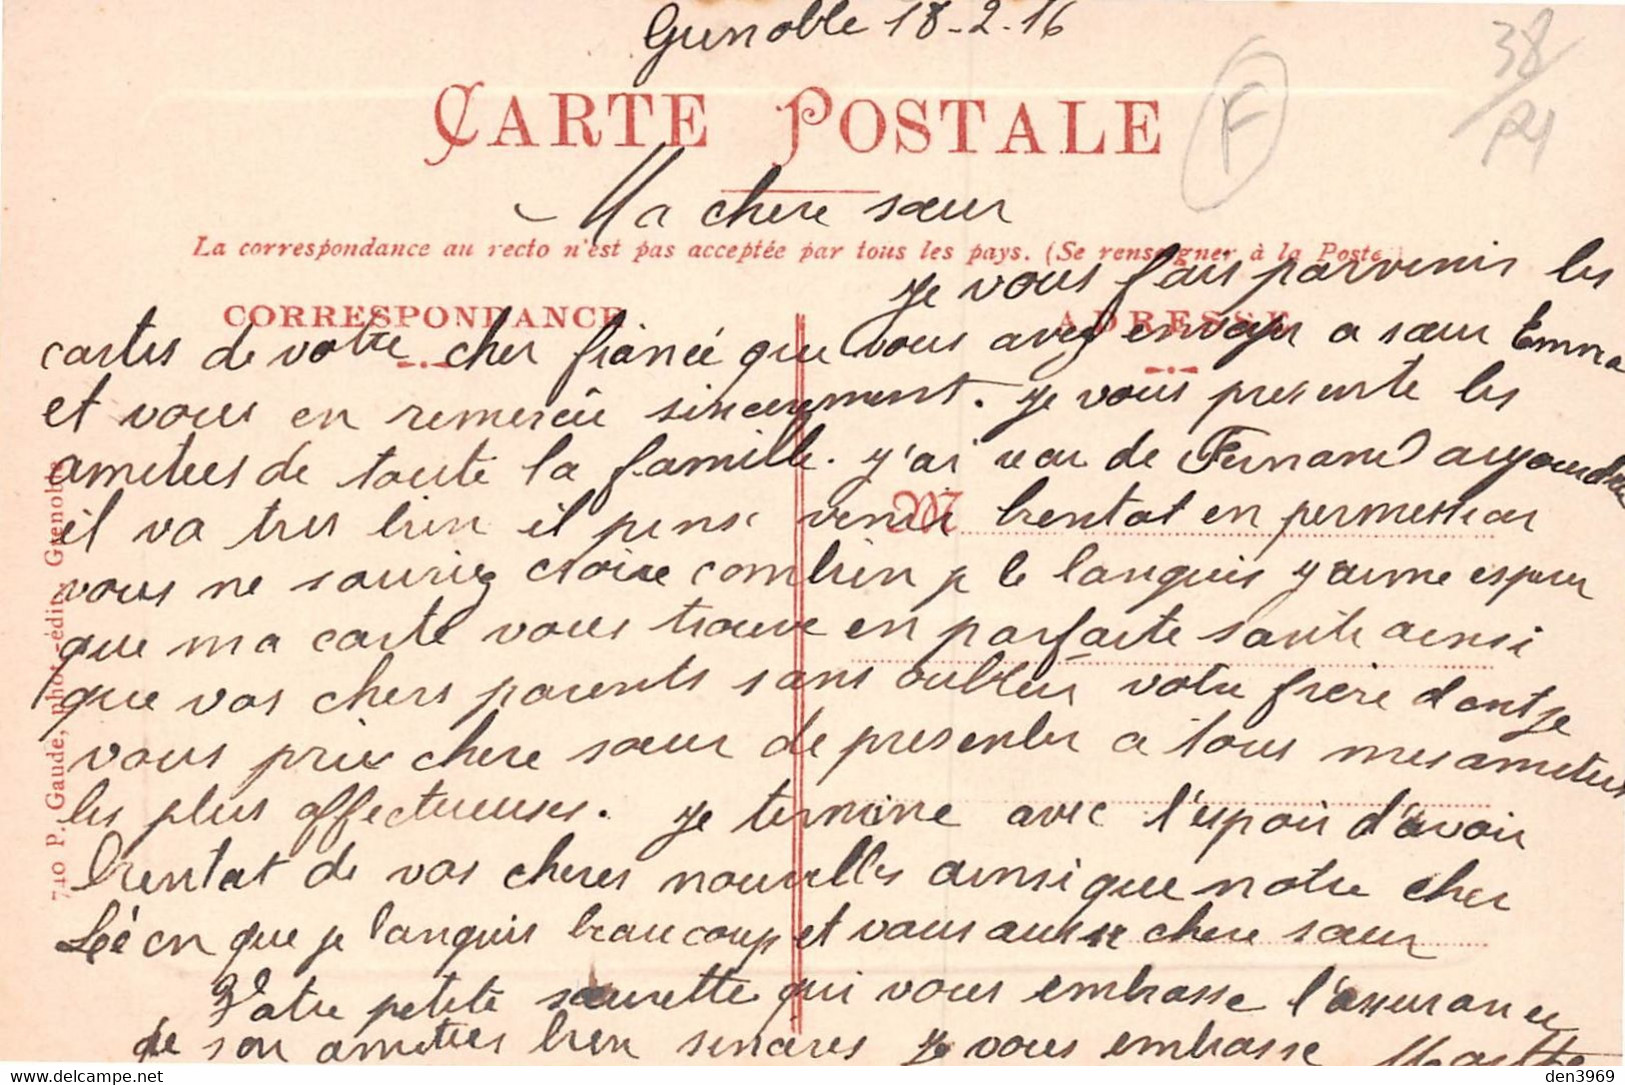 Grenoble 18-2-16
38/P1
F
CARTE POSTALE
Ma chere sœur
La correspondance au recto n'est pas acceptée par tous les pays. (Se renseigner à la Poste)
je vous fais parvenir les
CORRESPONDANCE
ADRESSE
cartes de votre cher fiancée que vous avez envoyer a sœur Emma
et vous en remercie sincerement. je vous presente les
amities de toute la famille. j'ai de Fernand aujourdhui
il va tres bien il pense venir bientot en permession
M
vous ne sauriez croire combien je le languis j'aime esperer
que ma carte vous trouve en parfaite sante ainsi
que vos chers parents sans oublier votre frère dont je
vous prie chere sœur de presenter a tous mes amities
les plus affectueuses. je termine avec l'espoir d'avoir
bientot de vos cheres nouvelles ainsi que notre cher
Léon que je languis beaucoup et vous aussi chere sœur
Votre petite sœurette qui vous embrasse l'assurance
de son amities bien sincères je vous embrasse Marthe
710 P. Gaude, phot.-édit. Grenoble
delcampe.net
den3969